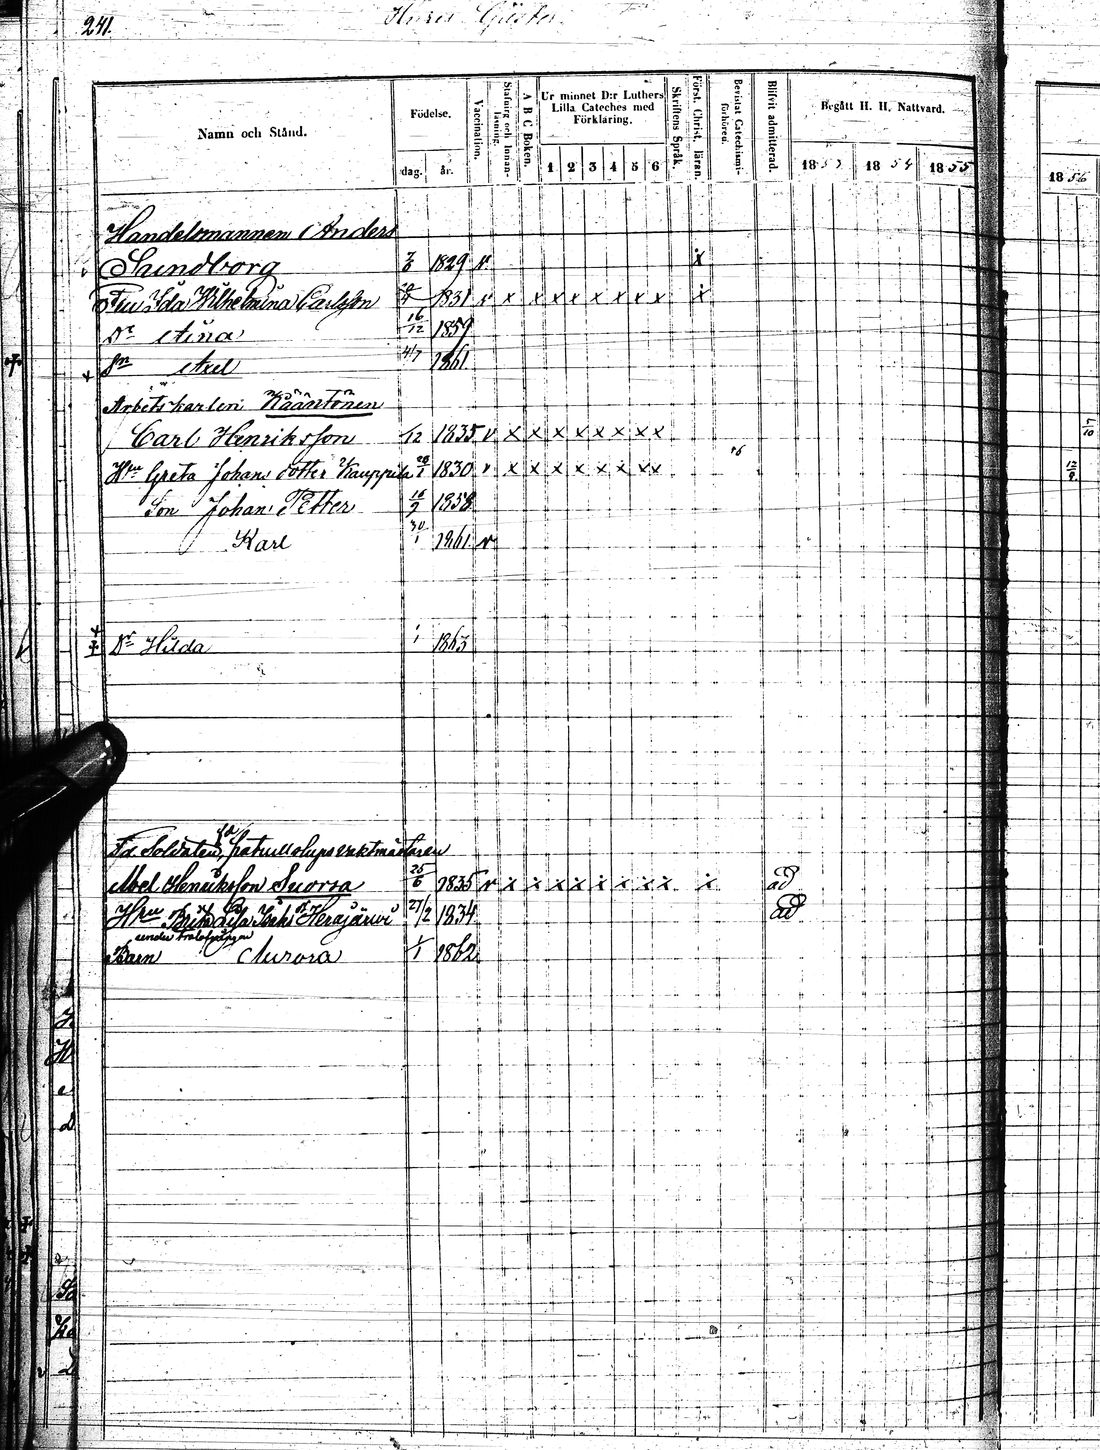 241.
Namn och Stånd.
Födelse.
dag. år.
Vaccination.
Stafning och Innanläsning.
A B C Boken.
Ur minnet D:r Luthers Lilla Cateches med Förklaring.
1 2 3 4 5 6
Skriftens Språk.
Först. Christ. läran.
Bevistat Catechismiförhören.
Blifvit admitterad.
Begått H. H. Nattvard.
1853 1854 1855
1856
Handelsmannen Anders
Sundborg 1829 v x
Fru Ida Wilhelmina Carlsson 1831 v x x x x x x x x x
Dr Aina 16/12 1859
Sn Axel 4/7 1861
Arbetskarlen Kääntönen
Carl Henriksson /12 1835 v x x x x x x x x
Hru Greta Johans dotter Kauppila 1830 v x x x x x x x x
Son Johan Petter 1858
Karl 30/1 1861 v
Dr Hilda 1863
Fd. Soldaten,
Abel Henriksson Suorsa 25/6 1835 v x x x x x x x x x ad
Hru Herajärvi 27/2 1834 ad
Barn Aurora 1/1 1862